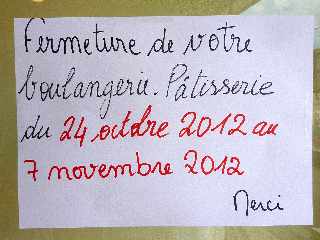 Fermeture de votre
boulangerie. Pâtisserie
du 24 octobre 2012 au
7 novembre 2012
Merci